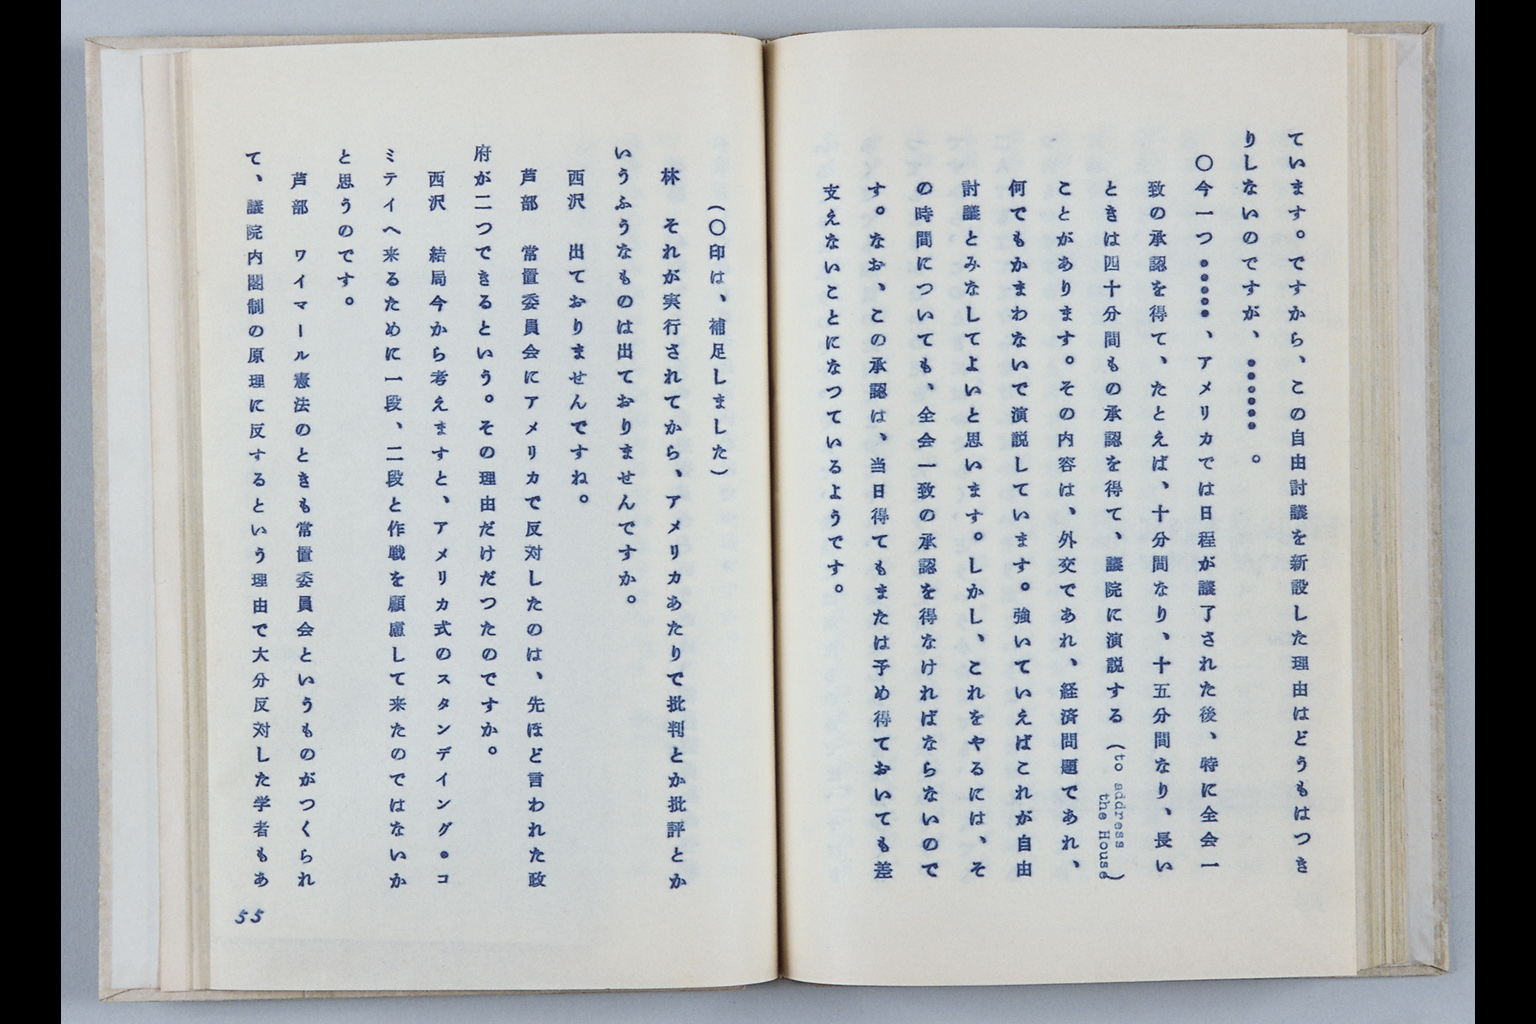 ています。ですから、この自由討議を新設した理由はどうもはつき
りしないのですが、●●●●●●。
〇今一つ●●●●●、アメリカでは日程が議了された後、特に全会一
致の承認を得て、たとえば、十分間なり、十五分間なり、長い
ときは四十分間もの承認を得て、議院に演説する(to address the House)
ことがあります。その内容は、外交であれ、経済問題であれ、
何でもかまわないで演説しています。強いていえばこれが自由
討議とみなしてよいと思います。しかし、これをやるには、そ
の時間についても、全会一致の承認を得なければならないので
す。なお、この承認は、当日得てもまたは予め得ておいても差
支えないことになつているようです。
(〇印は、補足しました)
林 それが実行されてから、アメリカあたりで批判とか批評とか
いうふうなものは出ておりませんですか。
西沢 出ておりませんですね。
芦部 常置委員会にアメリカで反対したのは、先ほど言われた政
府が二つできるという。その理由だけだつたのですか。
西沢 結局今から考えますと、アメリカ式のスタンデイング・コ
ミテイへ来るために一段、二段と作戦を顧慮して来たのではないか
と思うのです。
芦部 ワイマール憲法のときも常置委員会というものがつくられ
て、議院内閣制の原理に反するという理由で大分反対した学者もあ
55